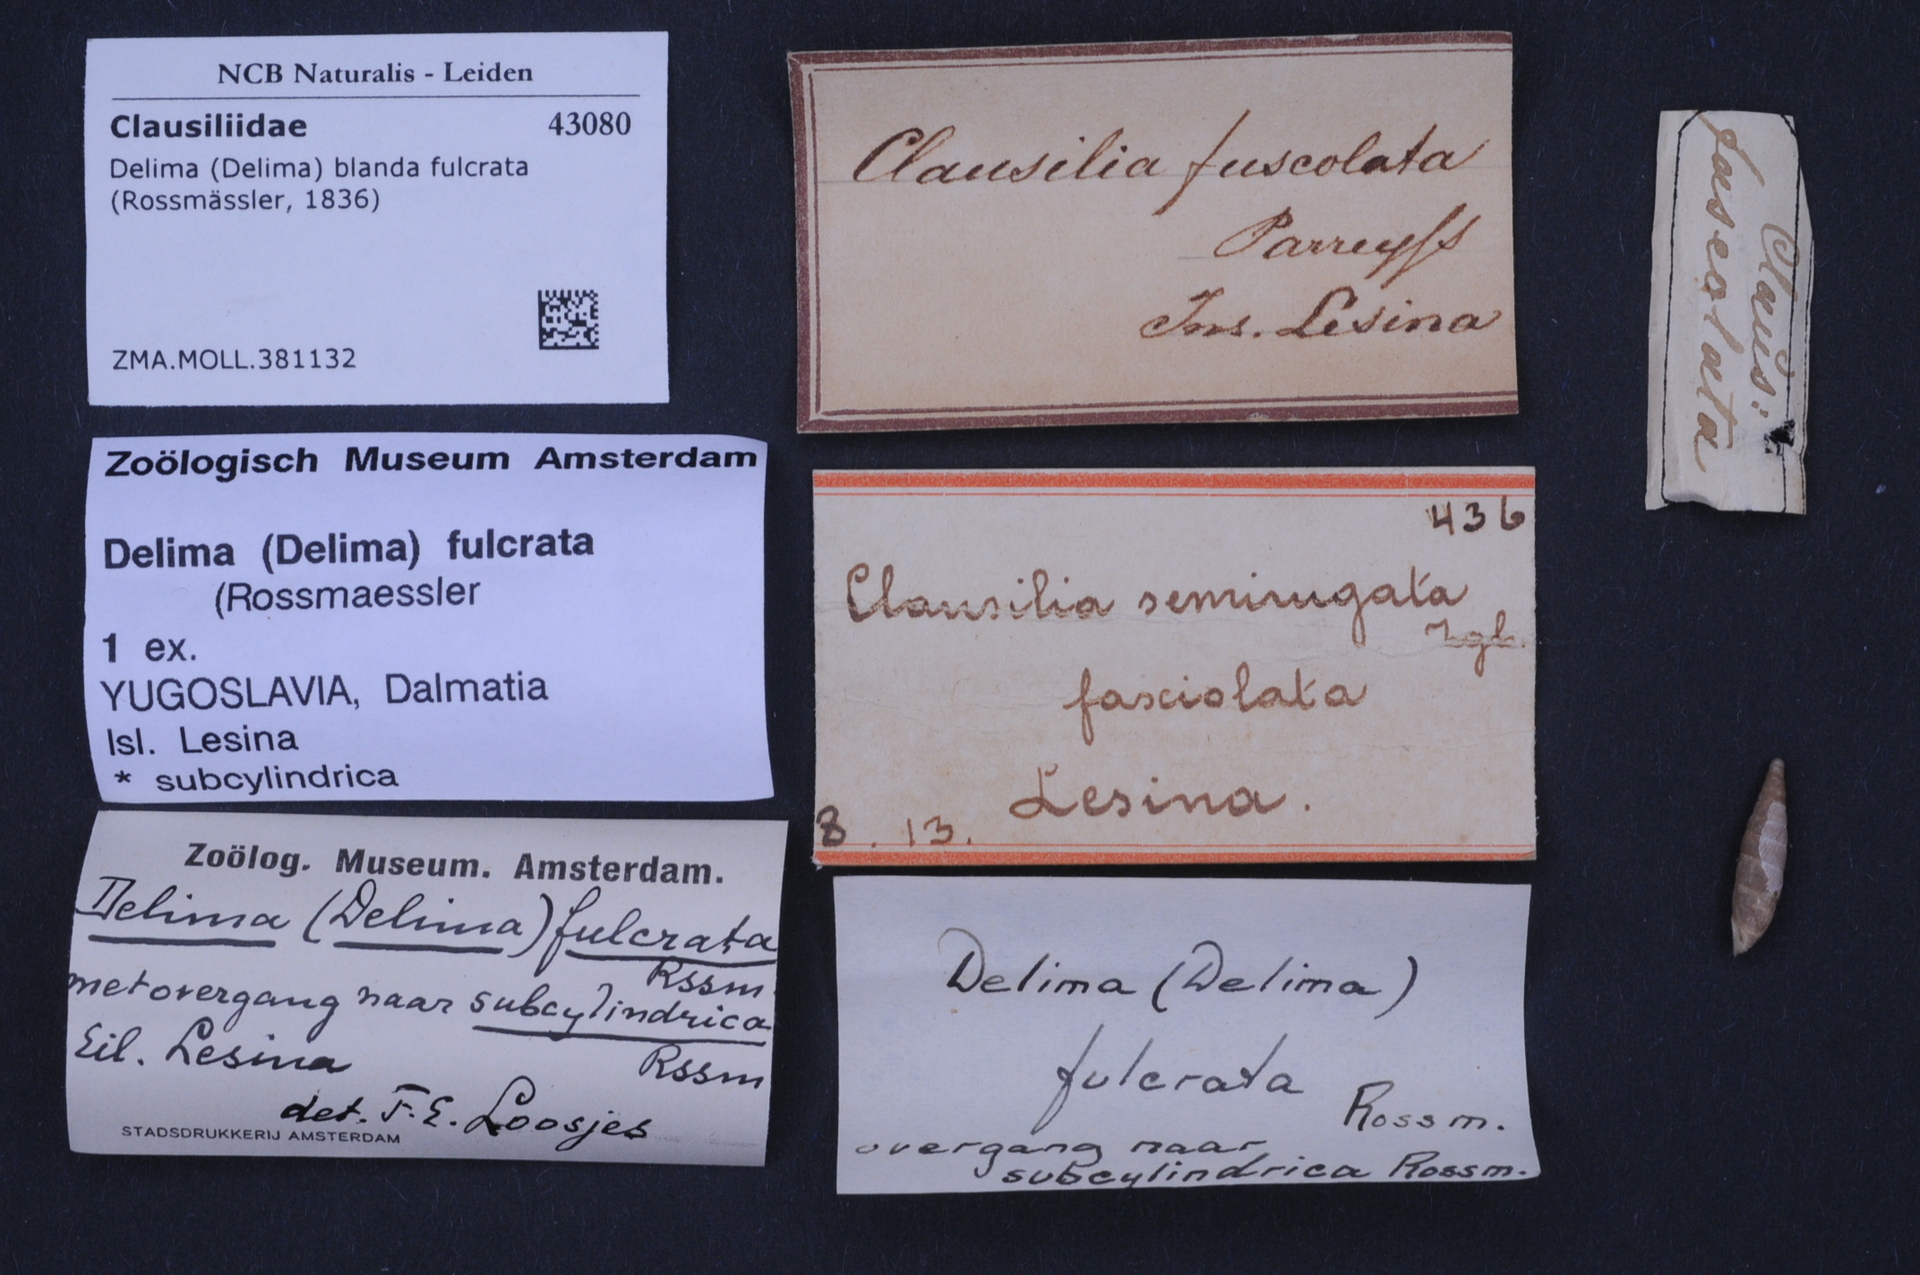 NCB Naturalis - Leiden
Clausiliidae 43080
Delima (Delima) blanda fulcrata
(Rossmässler, 1836)
ZMA.MOLL.381132
Zoölogisch Museum Amsterdam
Delima (Delima) fulcrata
(Rossmaessler
1 ex.
YUGOSLAVIA, Dalmatia
Isl. Lesina
* subcylindrica
Zoölog. Museum. Amsterdam.
Delima (Delima) fulcrata
Rssm
met overgang naar subcylindrica
Eil. Lesina Rssm
det. F. E. Loosjes
STADSDRUKKERIJ AMSTERDAM
Clausilia fuscolata
Parreyss
Ins. Lesina
436
Clausilia semirugata
Zgl.
fasciolata
Lesina.
8. 13.
Delima (Delima)
fulcrata
Rossm.
overgang naar
subcylindrica Rossm.
Claus:
fuscolata